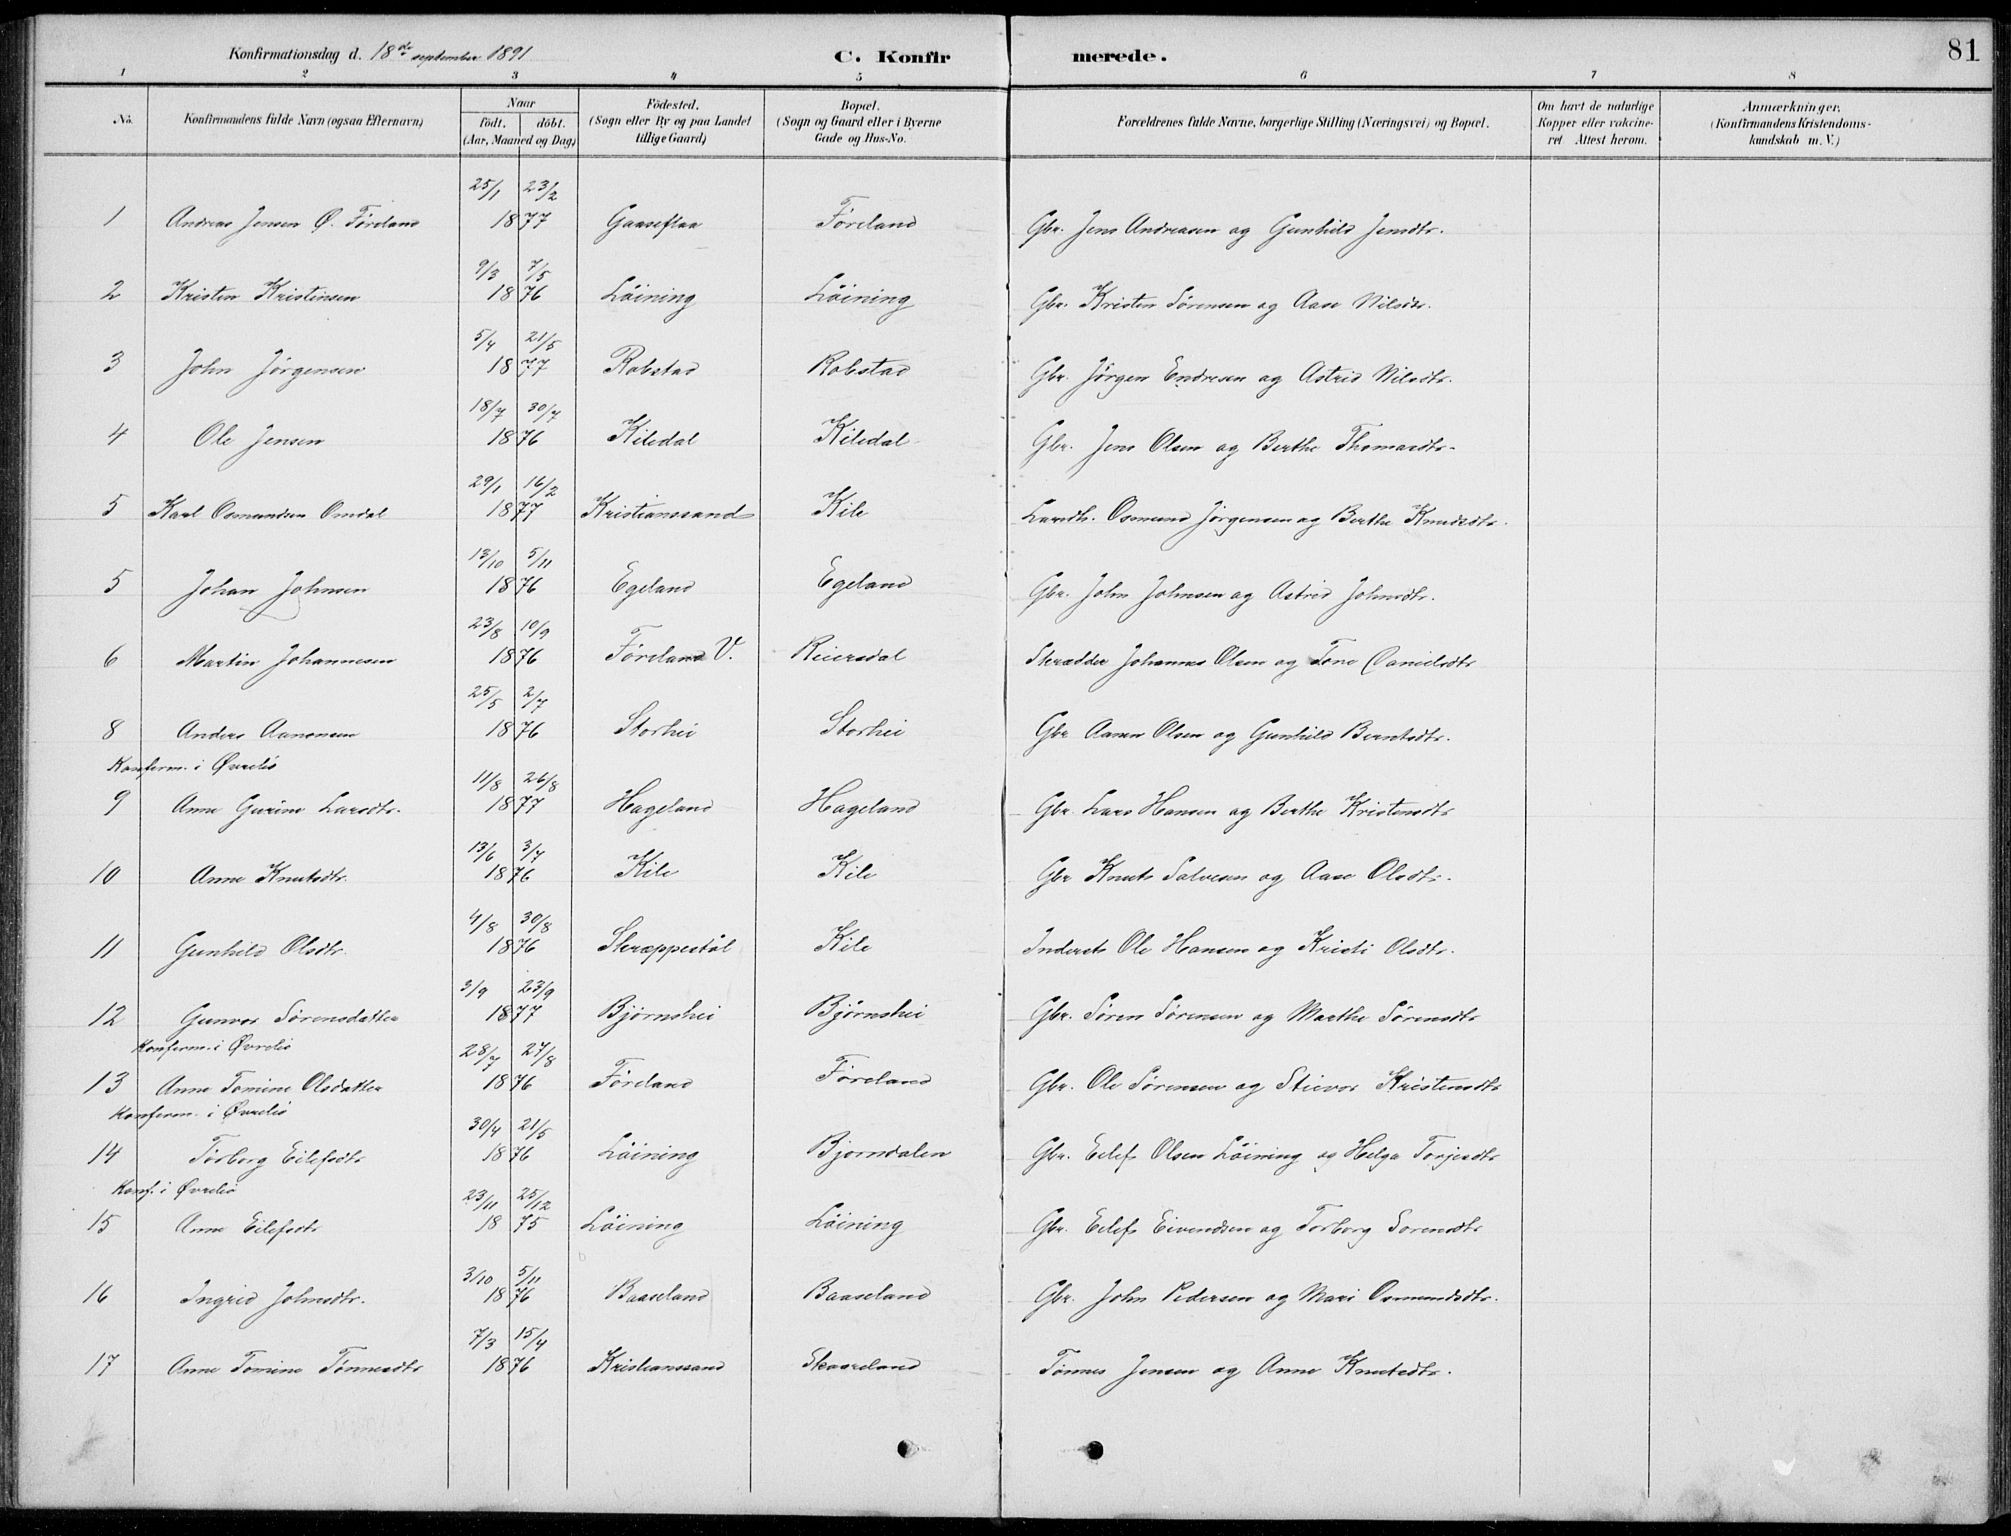 Konfirmationsdag d. 18de september 1891 C. Konfirmerede. 81
1 2 3 4 5 6 7 8
No. Konfirmandens fulde Navn (ogsaa Efternavn) Naar født. døbt. (Aar, Maaned og Dag) Födested. (Sogn eller By og paa Landet tillige Gaard) Bopæl. (Sogn og Gaard eller i Byerne Gade og Hus-No. Forældrenes fulde Navne, borgerlige Stilling (Næringsvei) og Bopæl. Om havt de naturlige Kopper eller vakcineret Attest herom. Anmærkninger. (Konfirmandens Kristendomskundskab m. V.)
25/1 23/2
1 Andreas Jensen Ø. Føreland 1877 Gaaseflaa Føreland Gbr. Jens Andreasen og Gunhild Jensdtr.
9/3 7/5
2 Kristen Kristensen 1876 Løining Løining Gbr. Kristen Sørensen og Aase Nilsdtr.
5/4 21/5
3 John Jørgensen 1877 Robstad Robstad Gbr. Jørgen Endresen og Astrid Nilsdtr.
18/7 30/7
4 Ole Jensen 1876 Kiledal Kiledal Gbr. Jens Olsen og Berthe Thomasdtr.
29/1 16/2
5 Karl Osmundsen Omdal 1877 Kristianssand Kile Landh. Osmund Jørgensen og Berthe Knudsdtr.
13/10 5/11
5 Johan Johnsen 1876 Egeland Egeland Gbr. John Johnsen og Astrid Johnsdtr.
23/8 10/9
6 Martin Johannesen 1876 Føreland V. Reiersdal Skrædder Johannes Olsen og Tone Danielsdtr
25/5 2/7
8 Anders Aanonsen 1876 Storhei Storhei Gbr Aanen Olsen og Gunhild Berntsdtr.
Konferm. i Øvrebø
11/8 26/8
9 Anne Gurine Larsdtr. 1877 Hageland Hageland Gbr. Lars Hansen og Berthe Kristensdtr
13/6 3/7
10 Anne Knutsdtr. 1876 Kile Kile Gbr Knut Salvesen og Aase Olsdtr.
4/8 30/8
11 Gunhild Olsdtr. 1876 Skræppestøl Kile Inderst Ole Hansen og Kristi Olsdtr.
3/9 23/9
12 Gunvor Sørensdatter 1877 Bjørnshei Bjørnshei Gbr. Søren Sørensen og Marthe Sørensdtr
Konferm. i Øvrebø
28/7 27/8
13 Anne Tomine Olsdatter 1876 Føreland Føreland Gbr. Ole Sørensen og Stievor Kristensdtr
Konferm. i Øvrebø
30/4 21/5
14 Torborg Eilefsdtr 1876 Løining Bjorndalen Gbr. Eilef Olsen Løining og Helga Torjesdtr
Konf. i Øvrebø
23/11 25/12
15 Anne Eilefsdtr 1875 Løining Løining Gbr. Eilef Eivendsen og Torborg Sorensdtr
3/10 5/11
16 Ingrid Johnsdtr. 1876 Baaseland Baaseland Gbr. John Pedersen og Mari Osmundsdtr.
7/3 15/4
17 Anne Tomine Tønnesdtr 1876 Kristianssand Skaareland Tønnes Jensen og Anne Knutsdtr.